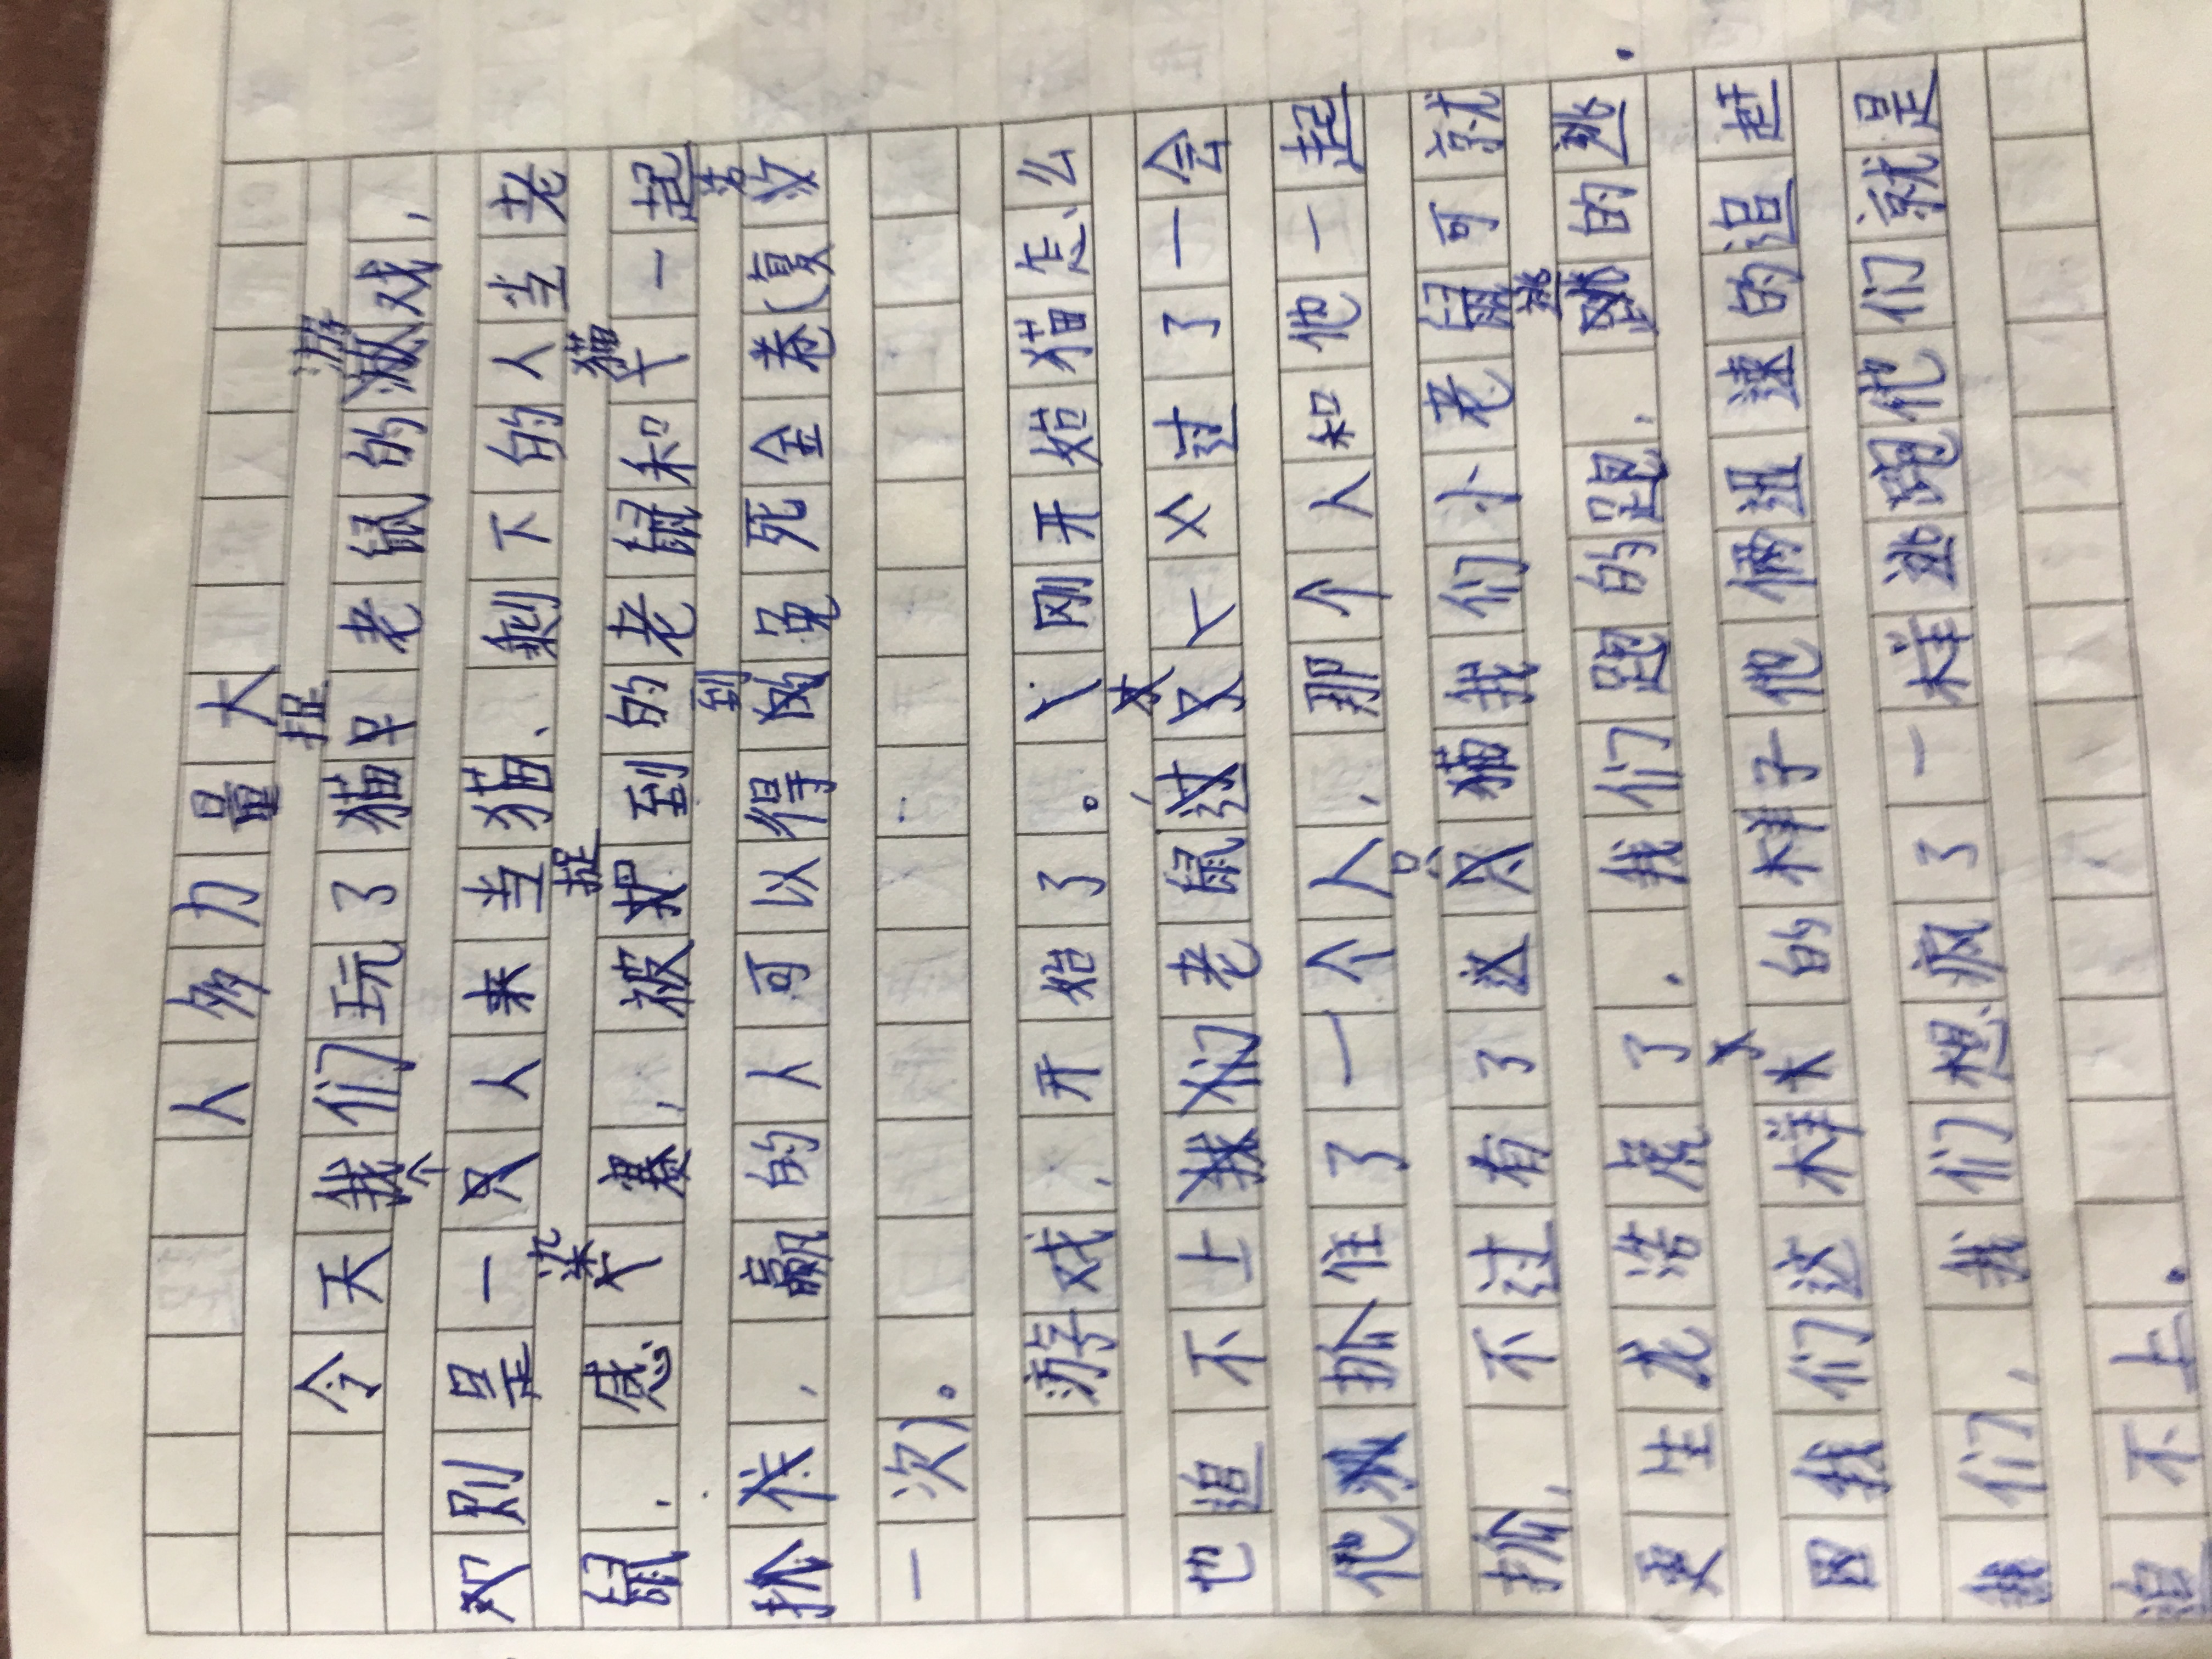 人多力量大
今天我们玩了猫捉老鼠的游戏,
则是一个人来当猫、剩下的人当老
鼠,感染赛,被捉到的老鼠和猫一起
抓,赢的人可以得到免死金卷(复活
一次)。
游戏,开始了。刚开始猫怎么
也追不上老鼠,过了一会
他抓住了一个人,那个人和他一起
抓,不过有了这只猫我们小老鼠可就
更生龙活虎了,我们跑的跑,逃的逃
因我们这样的样子他俩迅速的追赶
我们,我们想疯了一样逃跑他们就是
追不上.